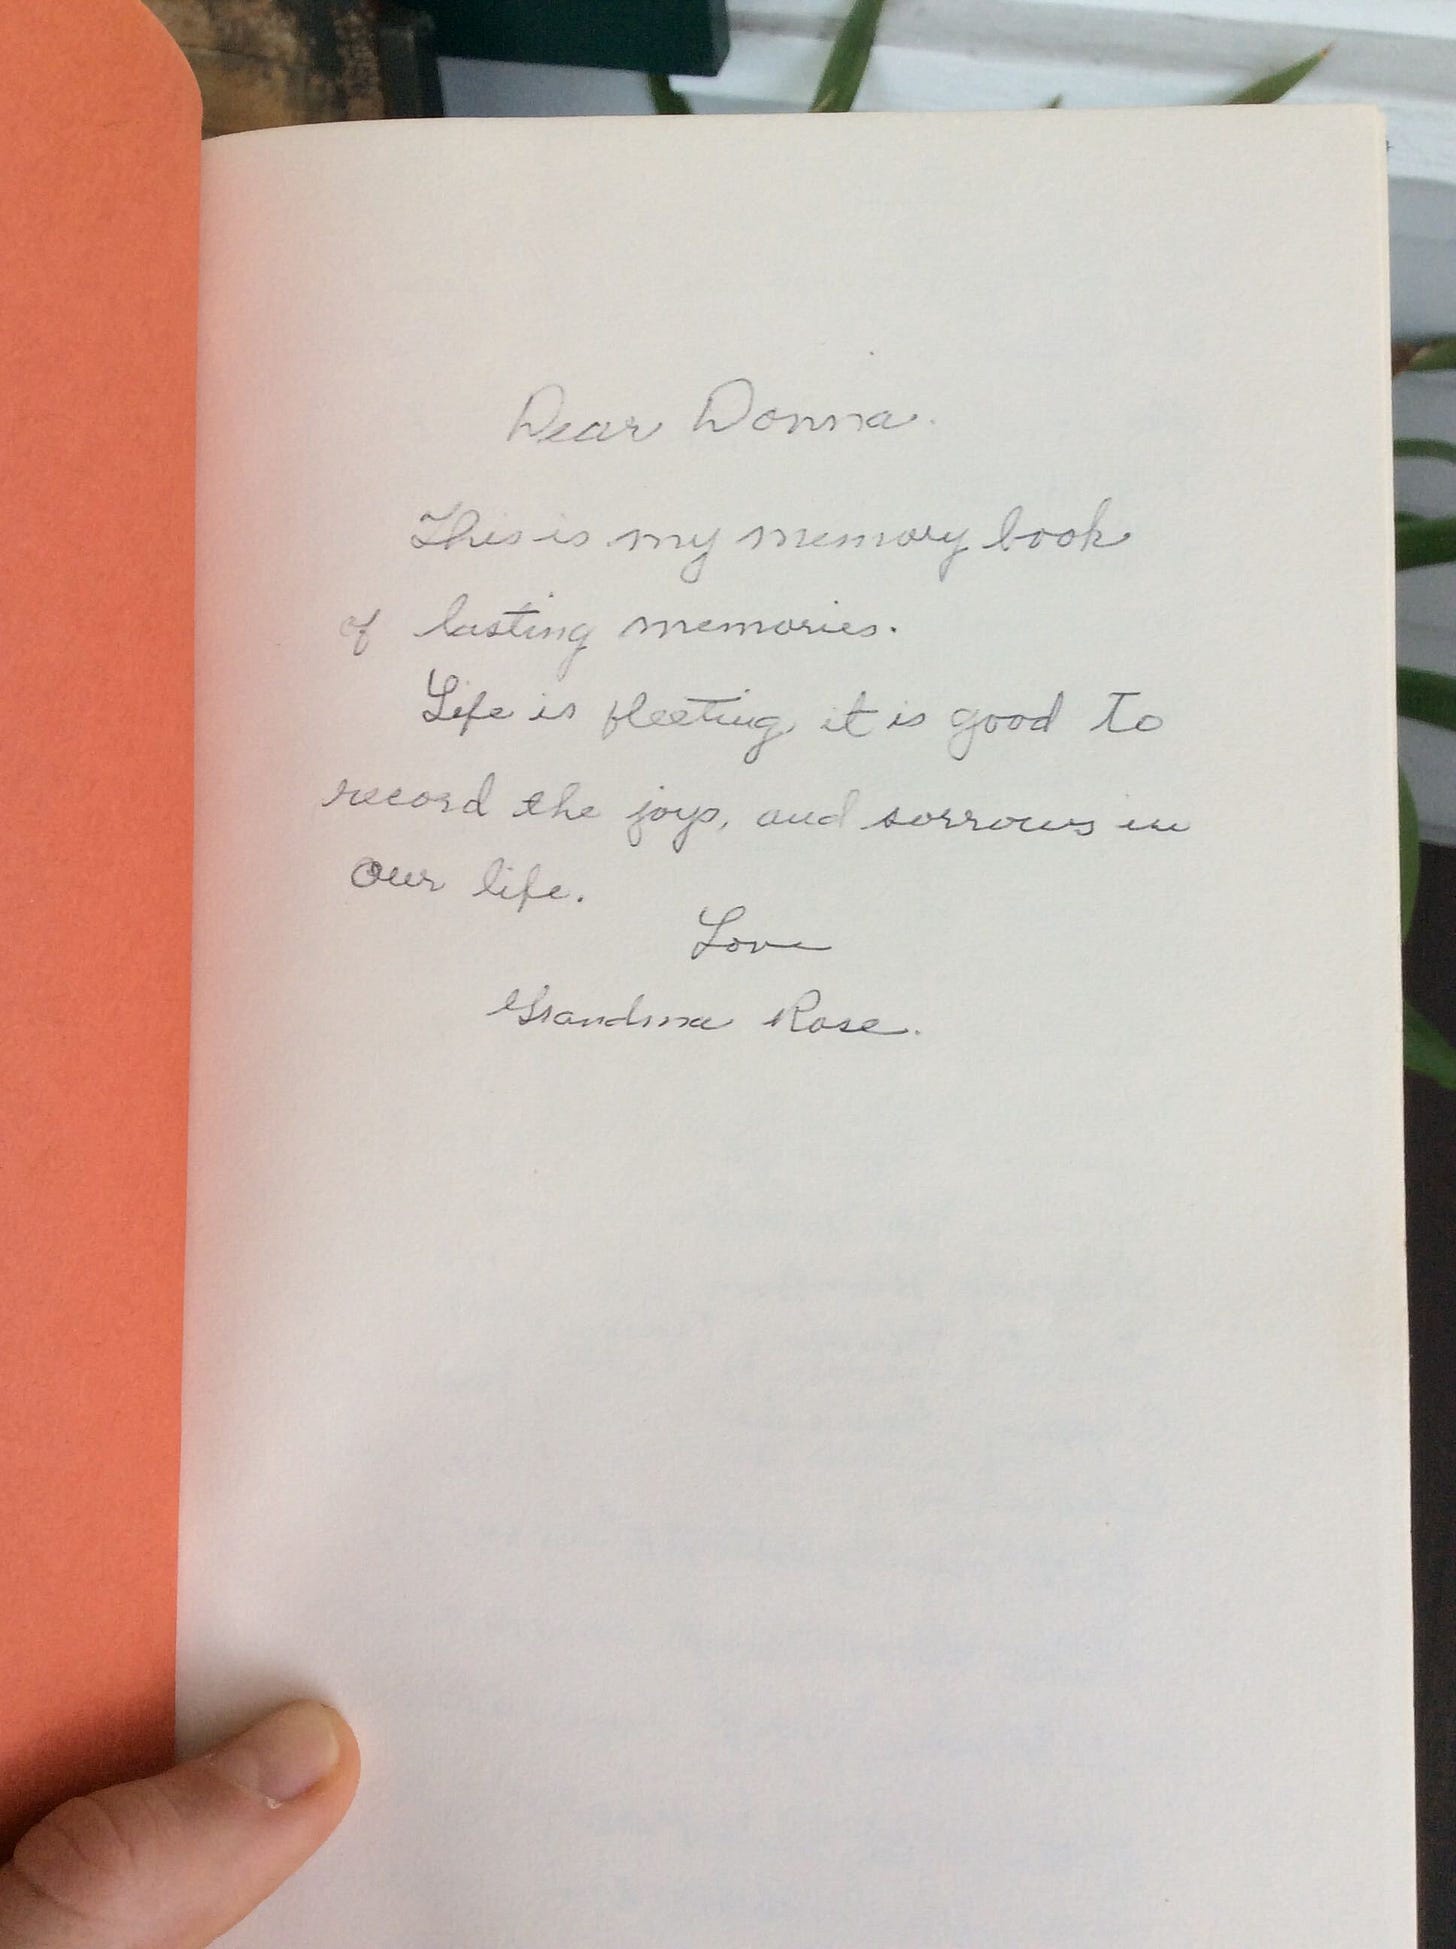 Dear Donna.
This is my memory book
of lasting memories.
Life is fleeting, it is good to
record the joys, and sorrows in
our life.
Love
Grandma Rose.